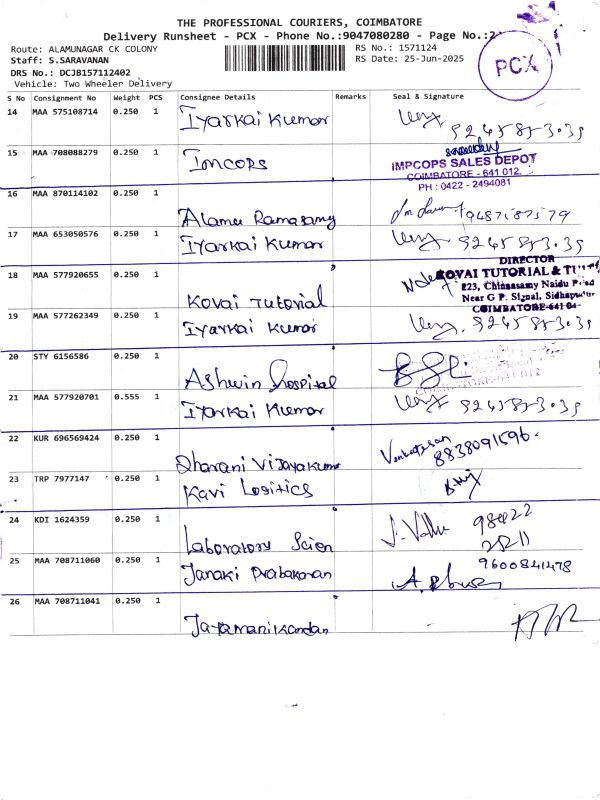 THE PROFESSIONAL COURIERS, COIMBATORE
Delivery Runsheet - PCX - Phone No.:9047080280 - Page No.:2
Route: ALAMUNAGAR CK COLONY
RS No.: 1571124
Staff: S.SARAVANAN
RS Date: 25-Jun-2025
DRS No.: DCJB157112402
Vehicle: Two Wheeler Delivery
PCX
S No Consignment No Weight PCS Consignee Details Remarks Seal & Signature
14 MAA 575108714 0.250 1 Iyarkai Kumar
15 MAA 708088279 0.250 1 Imcops
IMPCOPS SALES DEPOT
COIMBATORE - 641 012.
PH : 0422 - 2494081
16 MAA 870114102 0.250 1 Alamu Ramasamy 9487587579
17 MAA 653050576 0.250 1 Iyarkai Kumar
18 MAA 577920655 0.250 1 Kovai Tutorial
DIRECTOR
KOVAI TUTORIAL &
223, Chinnasamy Naidu Road
Near G P. Signal, Sidhapudur
COIMBATORE-641 04
19 MAA 577262349 0.250 1 Iyarkai Kumar
20 STY 6156586 0.250 1 Ashwin Hospital
21 MAA 577920701 0.555 1 Iyarkai Kumar
22 KUR 696569424 0.250 1 Dharani Vijayakumar Venkatesan
8838091596.
23 TRP 7977147 0.250 1 Kavi Logitics
24 KDI 1624359 0.250 1 Laboratory Scien
25 MAA 708711060 0.250 1 Janaki Prabakaran 9600841478
26 MAA 708711041 0.250 1 Jayamanikandan